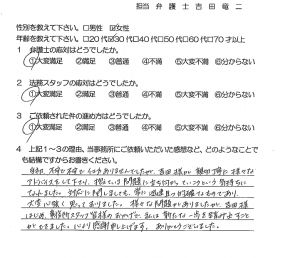 担当 弁護士吉田竜二
性別を教えて下さい。□男性 ☑女性
年齢を教えて下さい。□20代☑30代□40代□50代□60代□70才以上
1 弁護士の応対はどうでしたか。
①大変満足 ②満足 ③普通 ④不満 ⑤大変不満 ⑥分からない
2 法務スタッフの応対はどうでしたか。
①大変満足 ②満足 ③普通 ④不満 ⑤大変不満 ⑥分からない
3 ご依頼された弁護の進め方はどうでしたか。
①大変満足 ②満足 ③普通 ④不満 ⑤大変不満 ⑥分からない
4 上記1~3の理由、当事務所にご依頼いただいた感想など、どのようなことで
も結構ですからお書きください。
不安で仕方ありませんでしたが、吉田様が親切丁寧に様々な
アドバイスをして下さり、抱えている問題に立ち向かっていこうという気持ちに
なれました。対応に関しましても、常に迅速且つ的確なものであり、
大変心強く思っておりました。様々な問題がありましたが、吉田様
はじめ、事務所スタッフ皆様のおかげで、私は新たな一歩を踏み出すこと
ができました。心より感謝申し上げます。ありがとうございました。